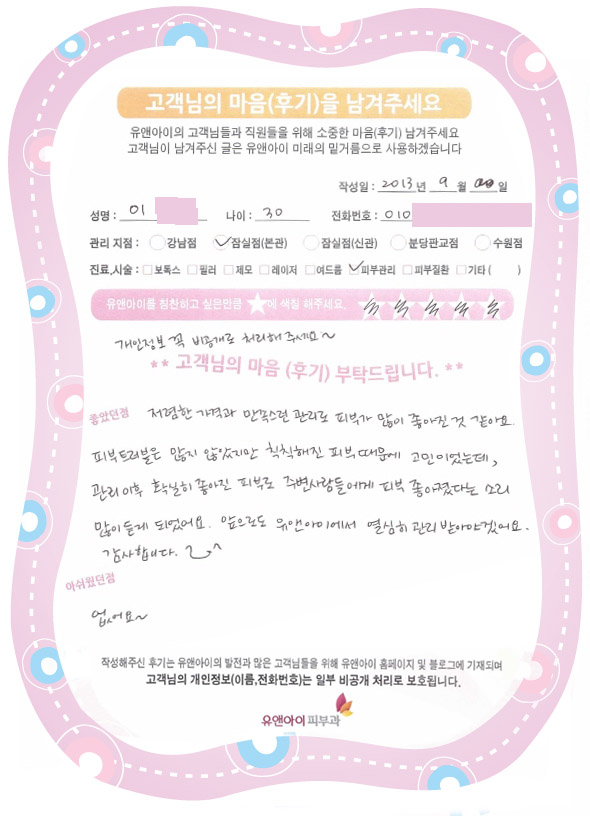 고객님의 마음(후기)을 남겨주세요
유앤아이의 고객님들과 직원들을 위해 소중한 마음(후기) 남겨주세요
고객님이 남겨주신 글은 유앤아이 미래의 밑거름으로 사용하겠습니다
작성일 : 2013년 9월 일
성명 : 이 나이 : 30 전화번호 : 010
관리 지점 : 강남점 잠실점(본관) 잠실점(신관) 분당판교점 수원점
진료,시술 : 보톡스 필러 제모 레이저 여드름 피부관리 피부질환 기타 ( )
유앤아이를 칭찬하고 싶은만큼 에 색칠 해주세요.
개인정보 꼭 비공개로 처리해 주세요~
** 고객님의 마음 (후기) 부탁드립니다. **
좋았던점
저렴한 가격과 만족스런 관리로 피부가 많이 좋아진 것 같아요.
피부트러블은 많지 않았지만 칙칙해진 피부때문에 고민이었는데,
관리 이후 확실히 좋아진 피부로 주변사람들에게 피부 좋아졌다는 소리
많이 듣게 되었어요. 앞으로도 유앤아이에서 열심히 관리 받아야겠어요.
감사합니다. ^^
아쉬웠던점
없어요~
작성해주신 후기는 유앤아이의 발전과 많은 고객님들을 위해 유앤아이 홈페이지 및 블로그에 기재되며
고객님의 개인정보(이름,전화번호)는 일부 비공개 처리로 보호됩니다.
유앤아이 피부과